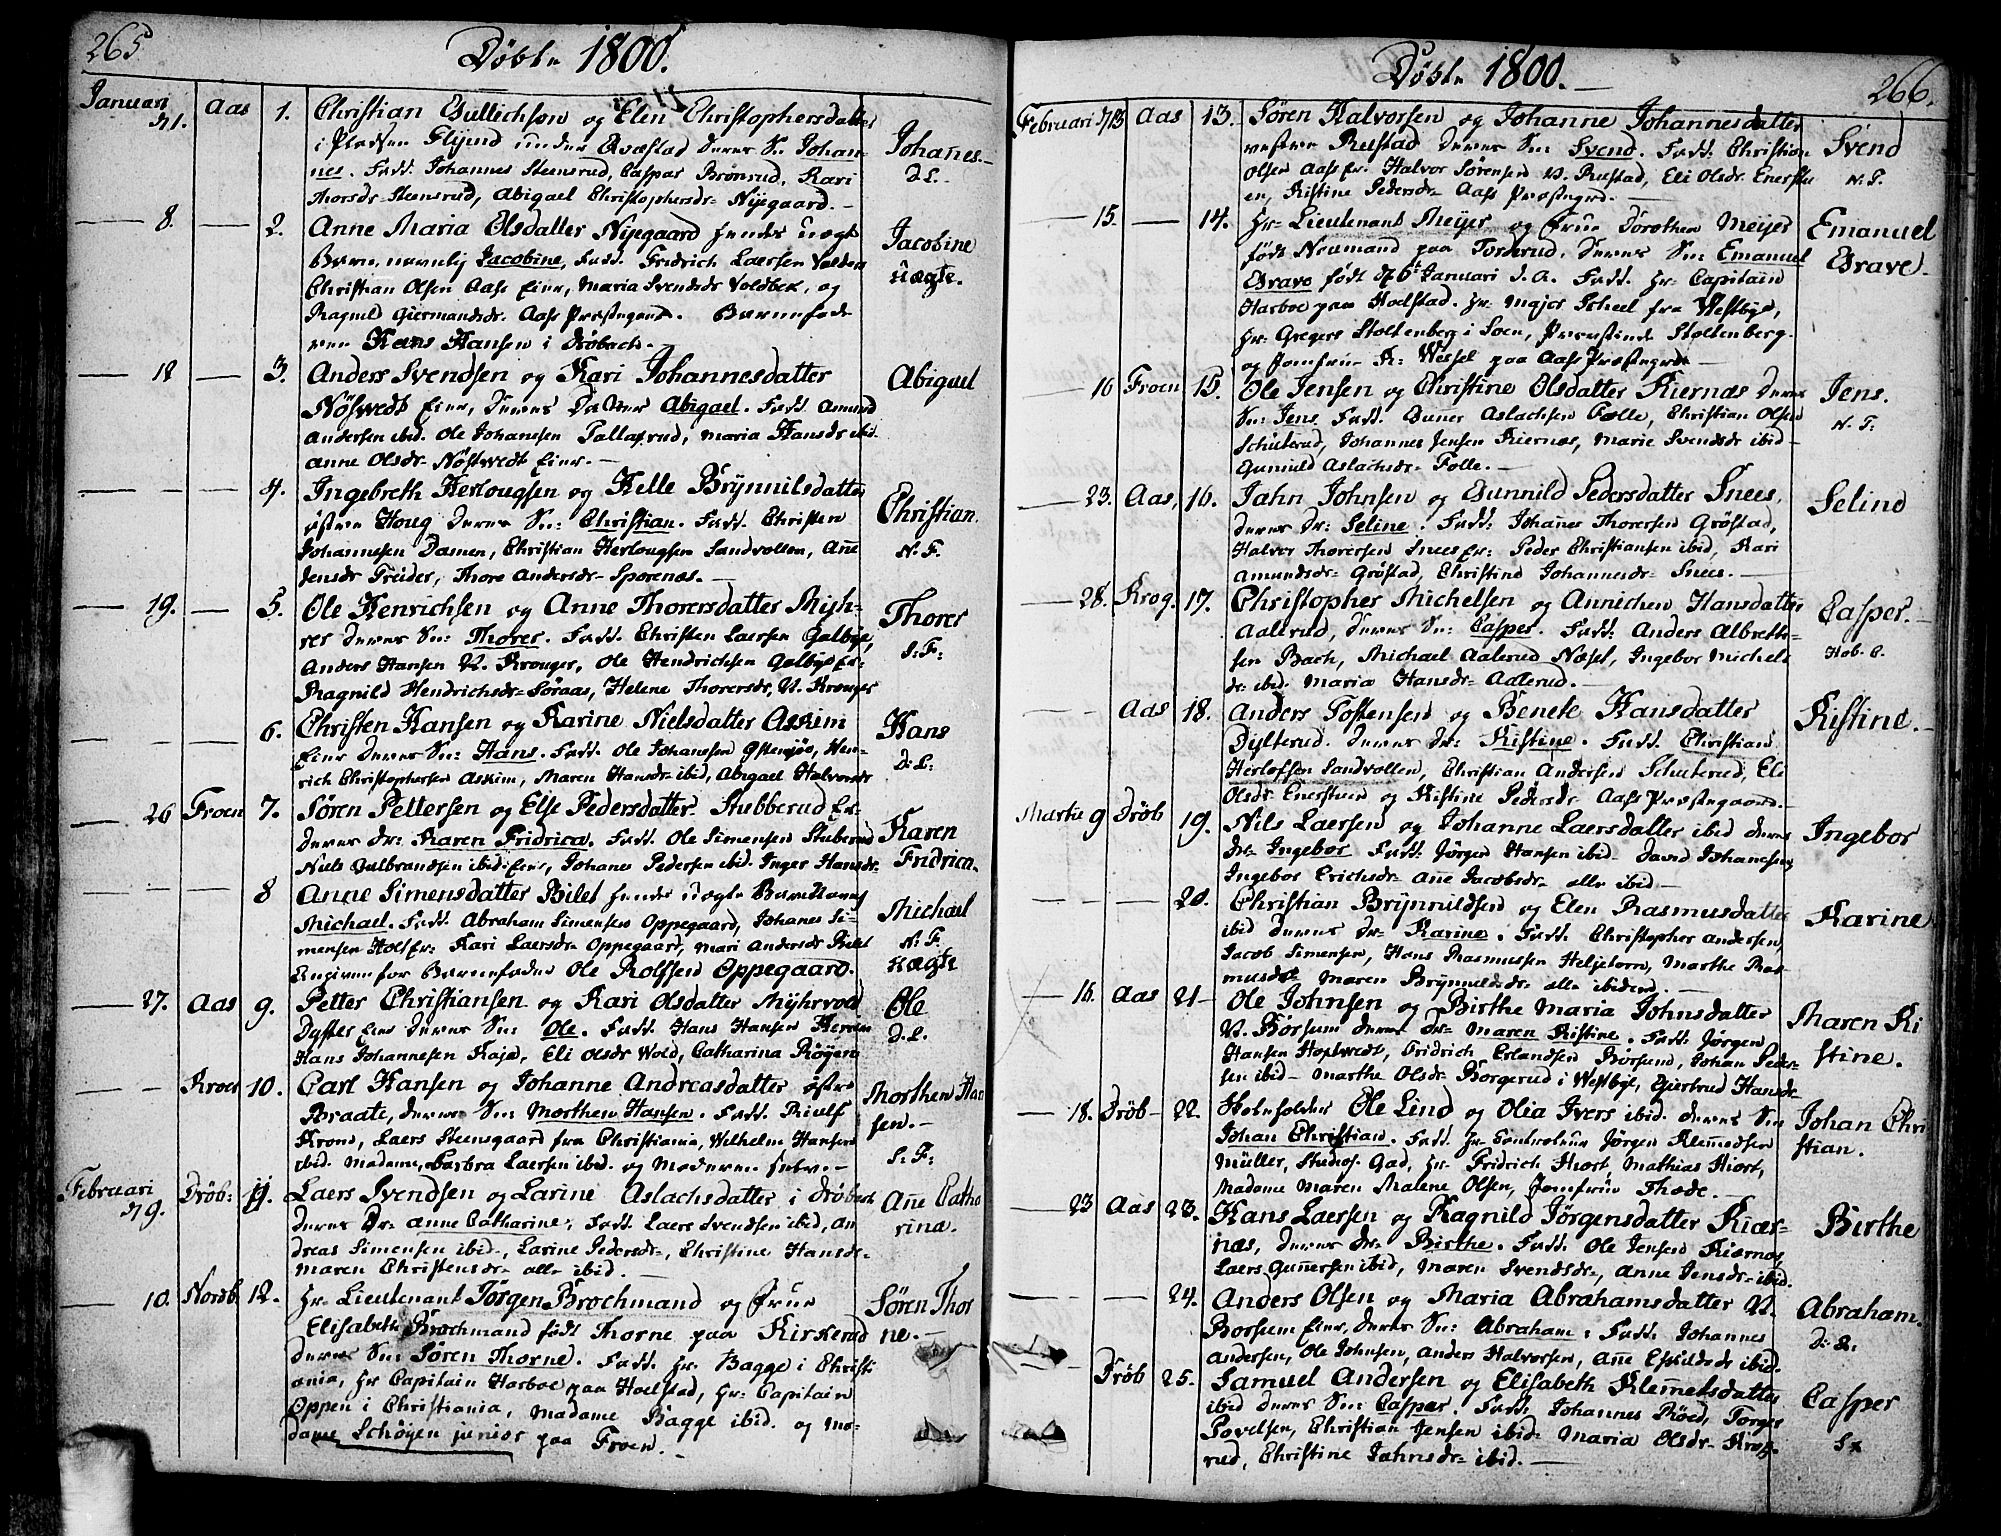 265
Döbte 1800.
Januari d 1. Aas 1. Christian Gullichsen og Elen Christophersdatter
i Pladsen Flyind under Qvæstad deres Sn: Johan-
nes. Fadd. Johannes Steensrud, Caspar Brönrud, Kari
Thorsdr Steensrud, Abigael Christophersdr Nÿegaard.
Johañes.
D.L.
8. 2. Anne Maria Olsdatter Nÿegaard hendes uægte
Barn, navnlig Jacobine, Fadd. Fridrich Laersen
Christian Olsen Aass Eier, Maria Svendsdr Voldbek, og
Ragnild Giermandsdr. Aass Præstegaard. Barnefade
ren Hans Hansen i Dröbach.
Jacobine
uægte.
18 3. Anders Svendsen og Kari Johannesdatter
Nöstvedt Eier, deres Datter Abigael. Fadd. Amund
Andersen ibid. Ole Johansen Pallasrud, Maria Hansdr ibid.
Anne Olsdr. Nöstvedt Eier.
Abigael
4. Ingebreth Herlougsen og Helle Brÿnnilsdatter
östre Houg deres Sn: Christian. Fadd. Christen
Johannesen Damen, Christian Herlougsen Sandvollen, Añe
Jensdr Treider, Thore Andersdr Sporenæs.
Christian.
N.F.
19. 5. Ole Henrichsen og Anne Thorersdatter Mÿh-
rer deres Sn: Thorer. Fadd. Christen Laersen Galbÿe,
Anders Hansen N. Kronger, Ole Hendrichsen Galbÿe Er-
Ragnild Hendrichsdr Söraas, Helene Thorersdr, N. Kronger
Thorer
S:F:
6. Christen Hansen og Karine Nielsdatter Askim
Eier deres Sn: Hans. Fadd. Ole Johanesen Östensjöe, Hen-
rich Christophersen Askim, Maren Hansdr ibid, Abigael Halvorsdr
Hans
D:L:
26 Froen 7. Sören Pettersen og Else Pedersdatter Stubberud Er-
deres Dr: Karen Fridrica. Fadd. Ole Simensen Stuberud
Niels Gulbrandsen ibid Eier, Johanes Pedersen ibid. Inger Hansdr.
Karen
Fridrica.
8 Anne Simensdatter Bilet hendes uægte Barn
Michael. Fadd. Abraham Simensen Oppegaard, Johanes Si-
mensen Hol Er: Kari Laersdr Oppegaard, Mari Andersdr Bilet
Angiven for Barnefader Ole Rolfsen Oppegaard.
Michael
N.F.
uægte
27. Aas 9. Petter Christiansen og Kari Olsdatter Mÿhrvold
Dÿster Eier deres Sn: Ole. Fadd. Hans Hansen
Hans Johannesen Kaja, Eli Olsdr Vold, Catharina Röÿen
Ole
D.L.
Kroer 10. Carl Hansen og Johanne Andreasdatter östre
Braate, deres Sn: Morthen Hansen. Fadd.
Krone, Laers Steensgaard fra Christiania, Wilhelm Hansen
ibid. Madame, Barbra Laersen ibid. og Moderen selv.
Morthen Han
sen.
S:F:
Februari d 9. Dröb: 11. Laers Svendsen og Larine Aslachsdatter i Dröbach
deres Dr: Anne Catharine, Fadd. Laers Svendsen ibid, An
dreas Simensen ibid, Larine Pedersdr, Christine Hansdr
Maren Christensdr alle ibid.
Añe Catha
rina.
10. Nordb. 12. Hr Lieutenant Jörgen Brochmand og Frue
Elisabeth Brochmand födt Thorne paa Kirkerud
deres Sn: Sören Thorne. Fadd. Hr. Bagge i Christi
ania, Hr Capitain Harboe paa Hoelstad, Hr: Capitain
Oppen i Christiania, Madame Bagge ibid. og Ma-
dame Schöÿen junior paa Froen.
Sören Thor
ne.
Döbte 1800.
266.
Februari d 13 Aas 13. Sören Halvorsen og Johanne Johannesdatter
vestre Rustad deres Sn: Svend. Fadd. Christian
Olsen Aass Er. Halvor Sörensen V. Rustad, Eli Olsdr. Enerstu
en, Kistine Pedersdr. Aass Præstegrd.
Svend
N.F.
15. 14. Hr Lieutenant Meÿer og Frue Dorothea Meÿer
födt Neumand paa Torderud, deres Sn: Emanuel
Grave födt d 6 Januari d.A. Fadd. Hr. Capitain
Harboe paa Hoelstad. Hr: Major Scheel fra Westbÿe,
Hr. Gregers Stoltenberg i Soen, Præstinde Stoltenberg.
og Jomfrue K: Wessel paa Aass Præstegrd
Emanuel
Grave.
16 Froen 15. Ole Jensen og Christine Olsdatter Kiernæs deres
Sn: Jens. Fadd. Guner Aslachsen Falle, Christian Olsen
Schuterud, Johannes Jensen Kiernæs, Marie Svendsdr ibid
Gunuld Aslachsdr Folle.
Jens.
N.F:
23. Aas, 16. Jahn Johnsen og Gunnild Pedersdatter Snees,
deres Dr: Seline. Fadd: Johañes Thorersen Gröstad,
Halvor Thorersen Snees Er: Peder Christiansen ibid, Kari
Amundsdr Gröstad, Christine Johannesdr Snees.
Seline
28. Krog. 17. Christopher Michelsen og Annichen Hansdatter
Aallrud, deres Sn: Casper. Fadd: Anders Albreth-
sen Bach, Michael Aalerud Næsel, Ingebor Michels
dr ibid. Maria Hansdr Aalerud.
Casper.
Hob. C.
Aas 18. Anders Tostensen og Benete Hansdatter
Dÿlterud. deres Dr: Kistine. Fadd. Christian
Herlofsen Sandvollen, Christian Andersen Schuterud, Eli
Olsdr Enerstuen og Kistine Pedersdr Aass Præstegaard.
Kistine.
Martii 9 Dröb 19. Nils Laersen og Johanne Laersdatter ibid deres
Dr: Ingebor Fadd: Jörgen Hansen ibid David Johanesen,
Ingebor Erichsdr Añe Jacobsdr alle ibid
Ingebor
20. Christian Brÿnnildsen og Elen Rasmusdatter
ibid deres Dr: Karine. Fadd: Christopher Andersen,
Jacob Simensen, Hans Rasmussen Heljeborn, Marthe Ras-
musdr Maren Brÿnnildsdr alle ibidem.
Karine
16. Aas 21 Ole Johnsen og Birthe Maria Johnsdatter
N. Borsum deres Dr: Maren Kistine. Fadd: Jörgen
Hansen Hoplvedt, Fridrich Erlandsen Borsum, Johan Peder-
sen ibid Marthe Olsdr Borgerud i Westbÿe, Giertrud Hansdr
Maren Ki
stine.
18. Dröb 22. Ole Lind og Olia Ivers ibid. deres Sn
Johan Christian. Fadd. Hr Controleur Jörgen Klemedsen
Müller, Studios. Gad, Hr Fridrich Hiort, Mathias Hiort,
Madame Maren Malene Olsen, Jomfrue Thede.
Johan Chri
stian.
23 Aas 23. Hans Laersen og Ragnild Jörgensdatter Kiær-
næs, deres Dr: Birthe. Fadd: Ole Jensen Kiernæs,
Laers Guñersen ibid, Maren Svendsdr, Anne Jensdr ibid.
Birthe
24. Anders Olsen og Maria Abrahamsdatter N.
Borsum Eier, deres Sn: Abraham. Fadd: Johannes
Andersen, Ole Johnsen, Anders Halvorsen, Añe Eskildsdr ibid.
Abraham.
D:L.
Dröb 25. Samuel Andersen og Elisabeth Klemetsdatter
ibid deres Sn: Casper. Fadd: Johannes Röed, Torger
Povelsen, Christian Jensen ibid. Maria Olsdr
rud, Christine Jahnsdr ibid.
Casper